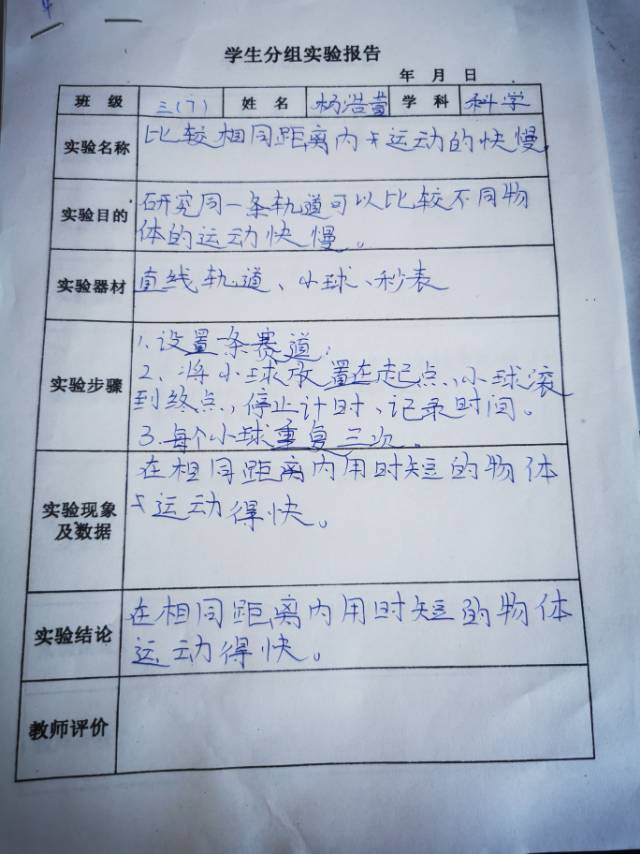 4
学生分组实验报告
年 月 日
班 级 三(7) 姓 名 杨浩萱 学 科 科学
实验名称 比较相同距离内运动的快慢
实验目的 研究同一条轨道可以比较不同物
体的运动快慢。
实验器材 直线轨道、小球、秒表
实验步骤 1、设置条赛道;
2、将小球放置在起点,小球滚
到终点,停止计时、记录时间。
3.每个小球重复三次。
实验现象及数据 在相同距离内用时短的物体
运动得快。
实验结论 在相同距离内用时短的物体
运动得快。
教师评价